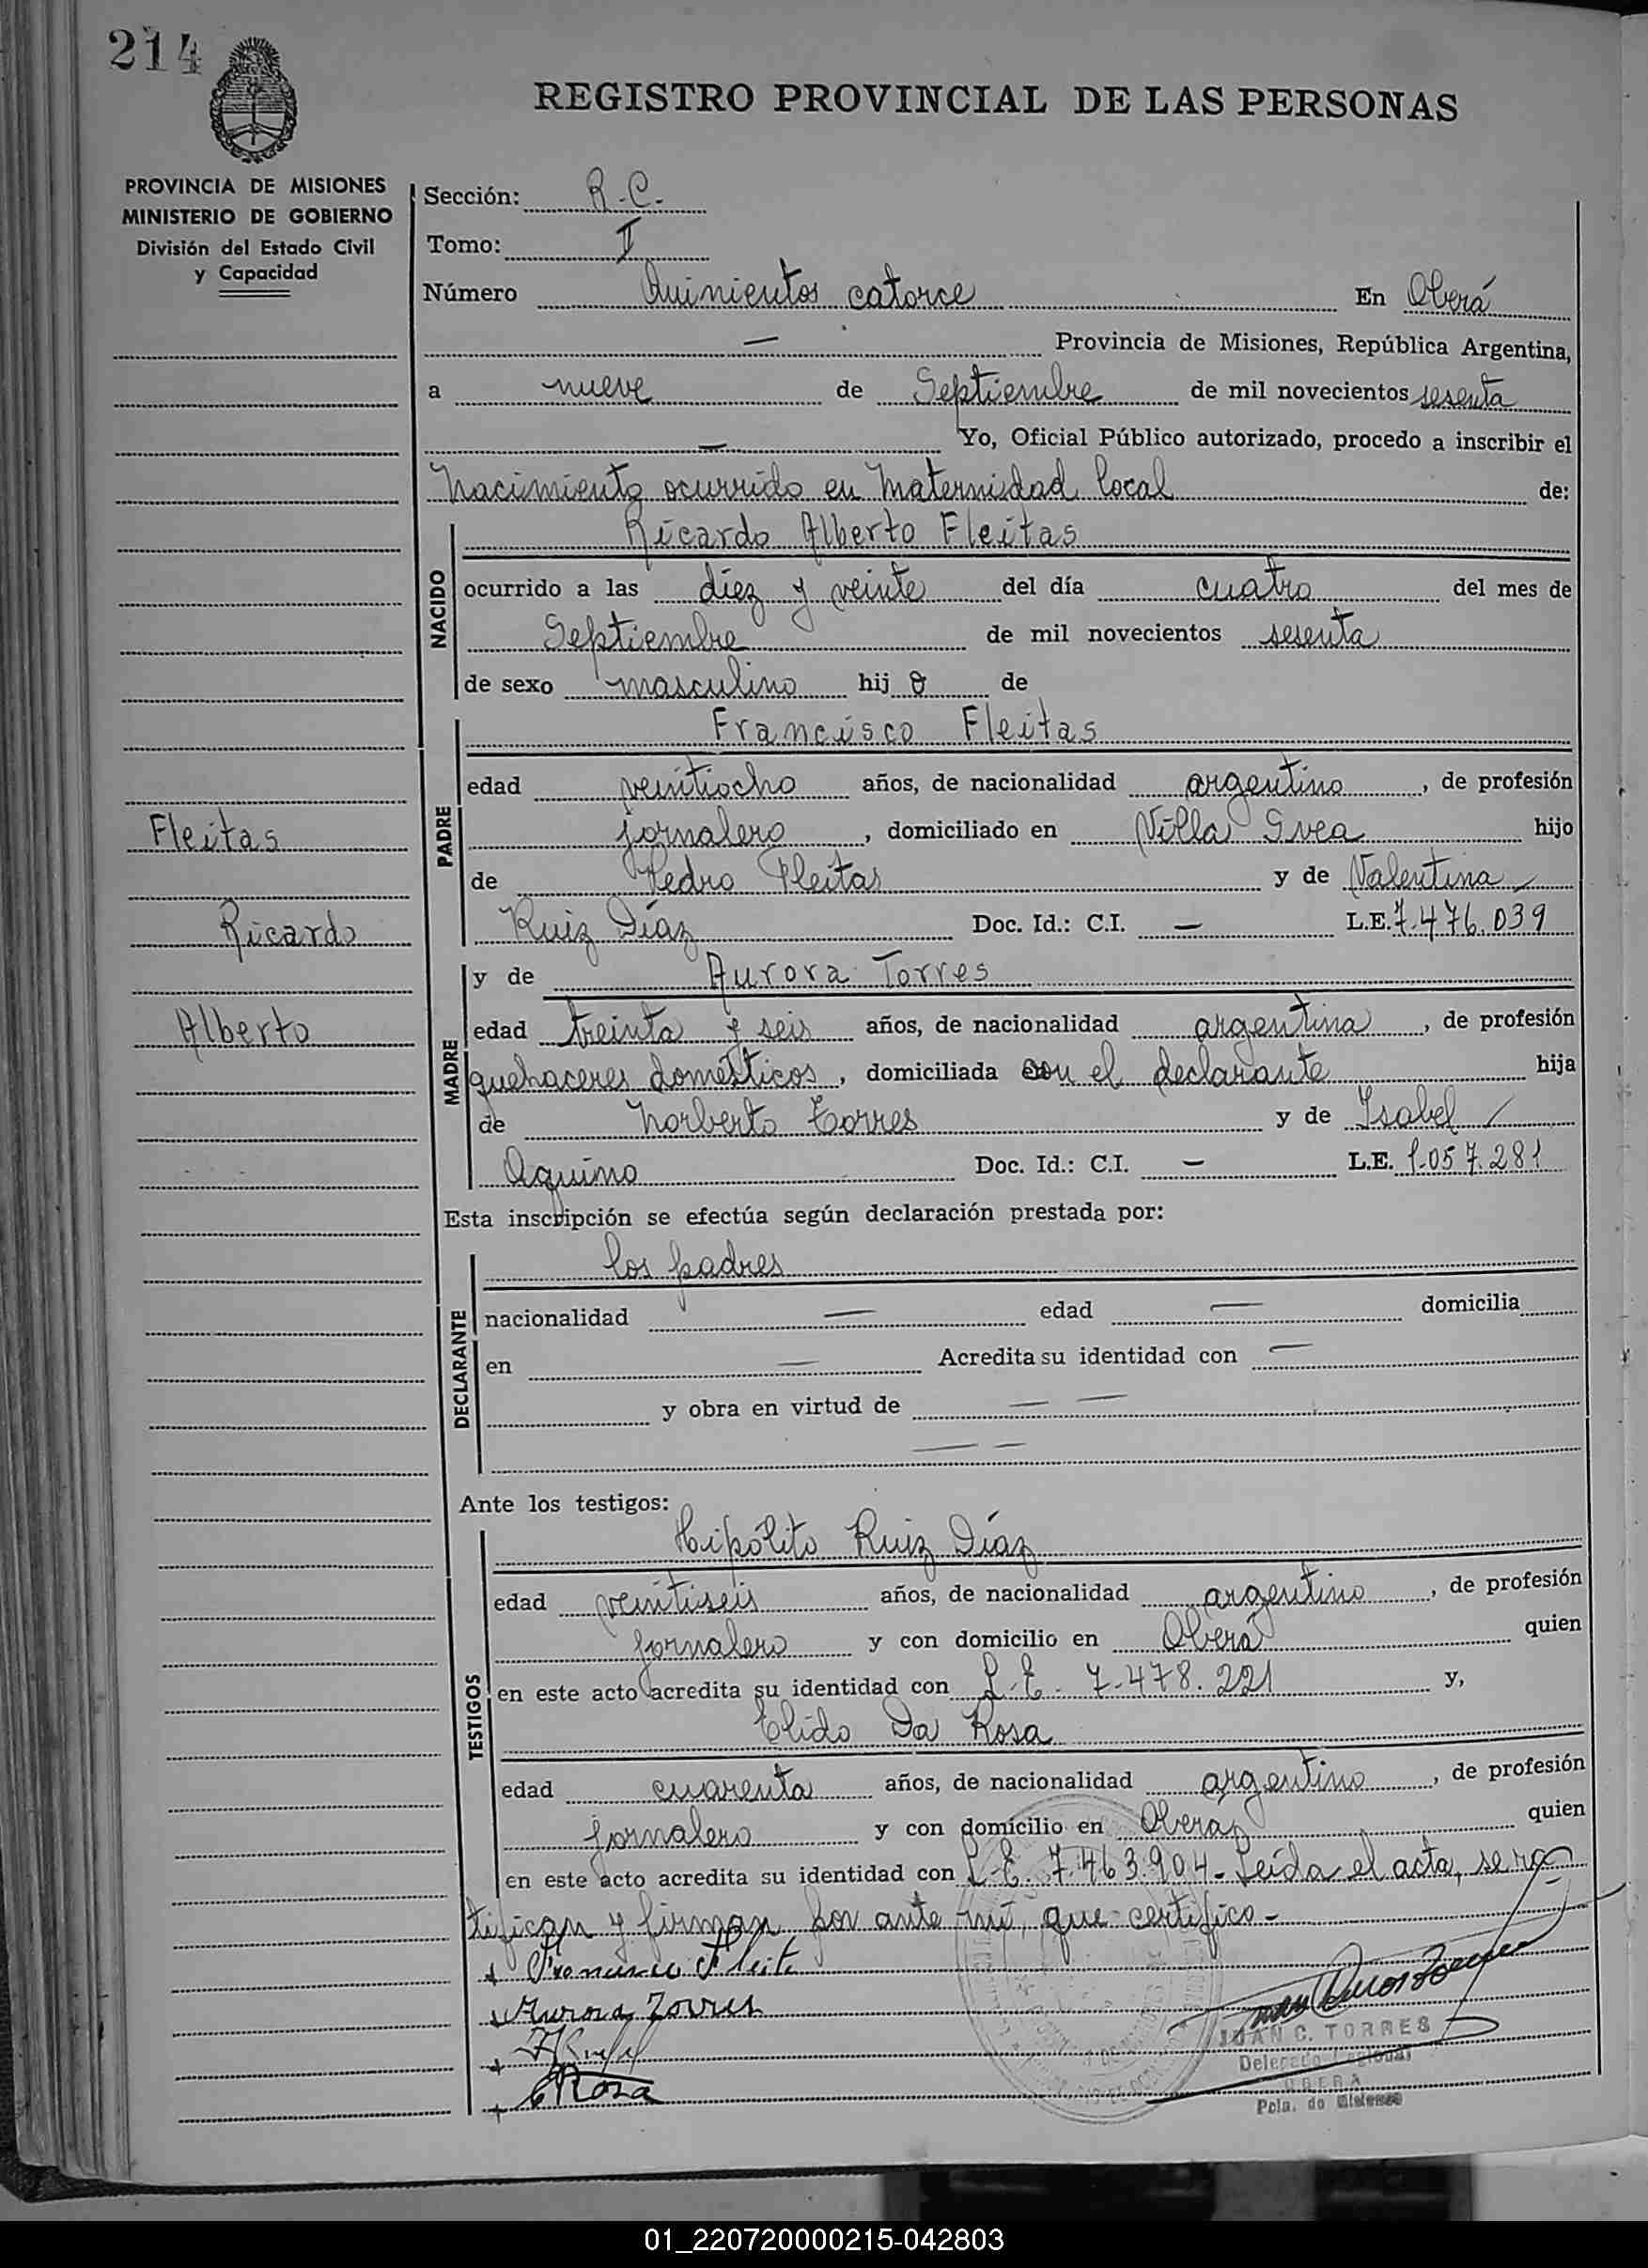 214
REGISTRO PROVINCIAL DE LAS PERSONAS
PROVINCIA DE MISIONES
MINISTERIO DE GOBIERNO
División del Estado Civil
y Capacidad
Sección: R.C.
Tomo: I
Número Quinientos catorce En Oberá
— Provincia de Misiones, República Argentina,
a nueve de Septiembre de mil novecientos sesenta
— Yo, Oficial Público autorizado, procedo a inscribir el
nacimiento ocurrido en Maternidad local de:
NACIDO
Ricardo Alberto Fleitas
ocurrido a las diez y veinte del día cuatro del mes de
Septiembre de mil novecientos sesenta
de sexo masculino hijo de
PADRE
Francisco Fleitas
edad veintiocho años, de nacionalidad argentino, de profesión
jornalero, domiciliado en Villa Svea hijo
de Pedro Fleitas y de Valentina
Ruiz Díaz Doc. Id.: C.I. — L.E. 7.476.039
Fleitas
Ricardo
Alberto
MADRE
y de Aurora Torres
edad treinta y seis años, de nacionalidad argentina, de profesión
quehaceres domésticos, domiciliada con el declarante hija
de Norberto Torres y de Isabel
Aquino Doc. Id.: C.I. — L.E. 1.057.281
Esta inscripción se efectúa según declaración prestada por:
DECLARANTE
los padres
nacionalidad — edad — domicilia
en — Acredita su identidad con —
y obra en virtud de — —
— —
Ante los testigos:
TESTIGOS
Hipólito Ruiz Díaz
edad veintiseis años, de nacionalidad argentino, de profesión
jornalero y con domicilio en Oberá quien
en este acto acredita su identidad con L.E. 7.478.221 y,
Elido Da Rosa
edad cuarenta años, de nacionalidad argentino, de profesión
jornalero y con domicilio en Oberá quien
en este acto acredita su identidad con L.E. 7.463.904 - Leída el acta, se ra
tifican y firman por ante mí, que certifico -
+ Francisco Fleita
+ Aurora Torres
+
+ Rosa
JUAN C. TORRES
Delegado
OBERA
Pcia. de Misiones
01_220720000215-042803